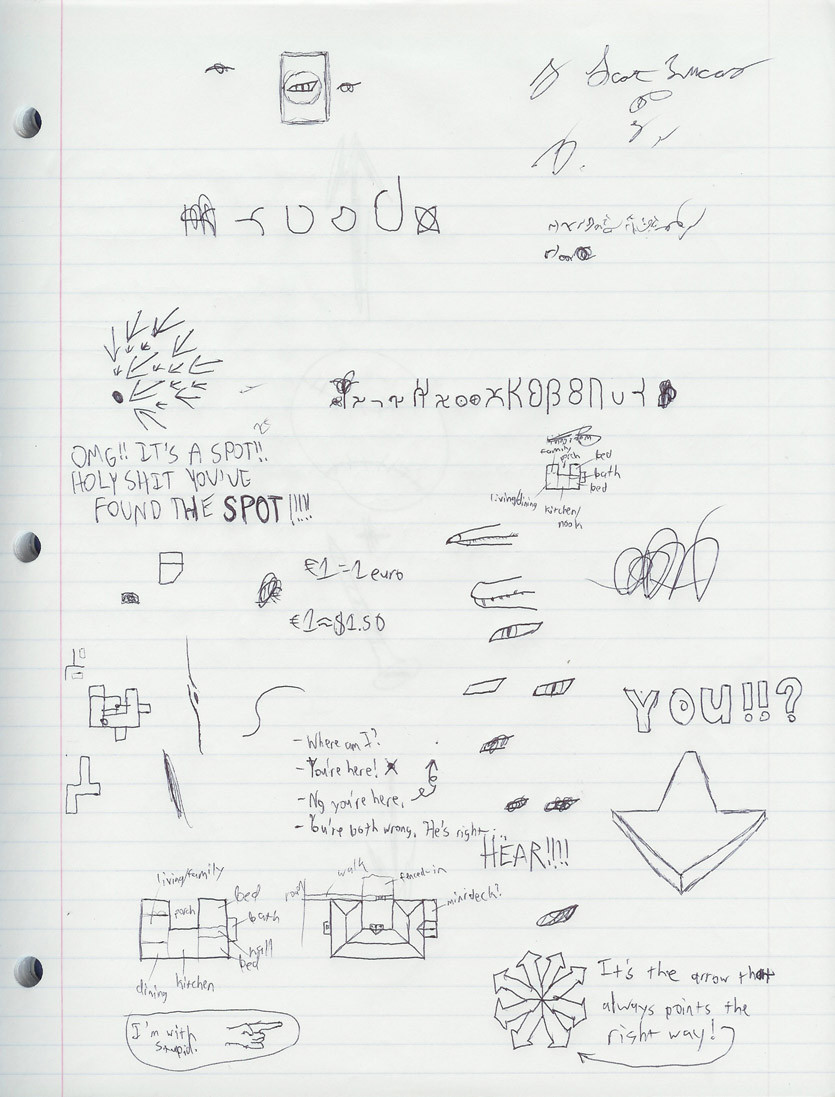 OMG!! IT'S A SPOT!!
HOLY SHIT YOU'VE
FOUND THE SPOT!!!!!
family
porch
bed
bath
bed
living/dining
kitchen/
nook
€1 = 1 euro
€1≈$1.50
YOU!!?
- Where am I?
- You're here! X
- No you're here.
- You're both wrong. He's right...
HEAR!!!!
living/family
porch
bed
bath
hall
bed
kitchen
dining
walk
fenced-in
road
minideck?
I'm with
stupid.
It's the arrow that
always points the
right way!